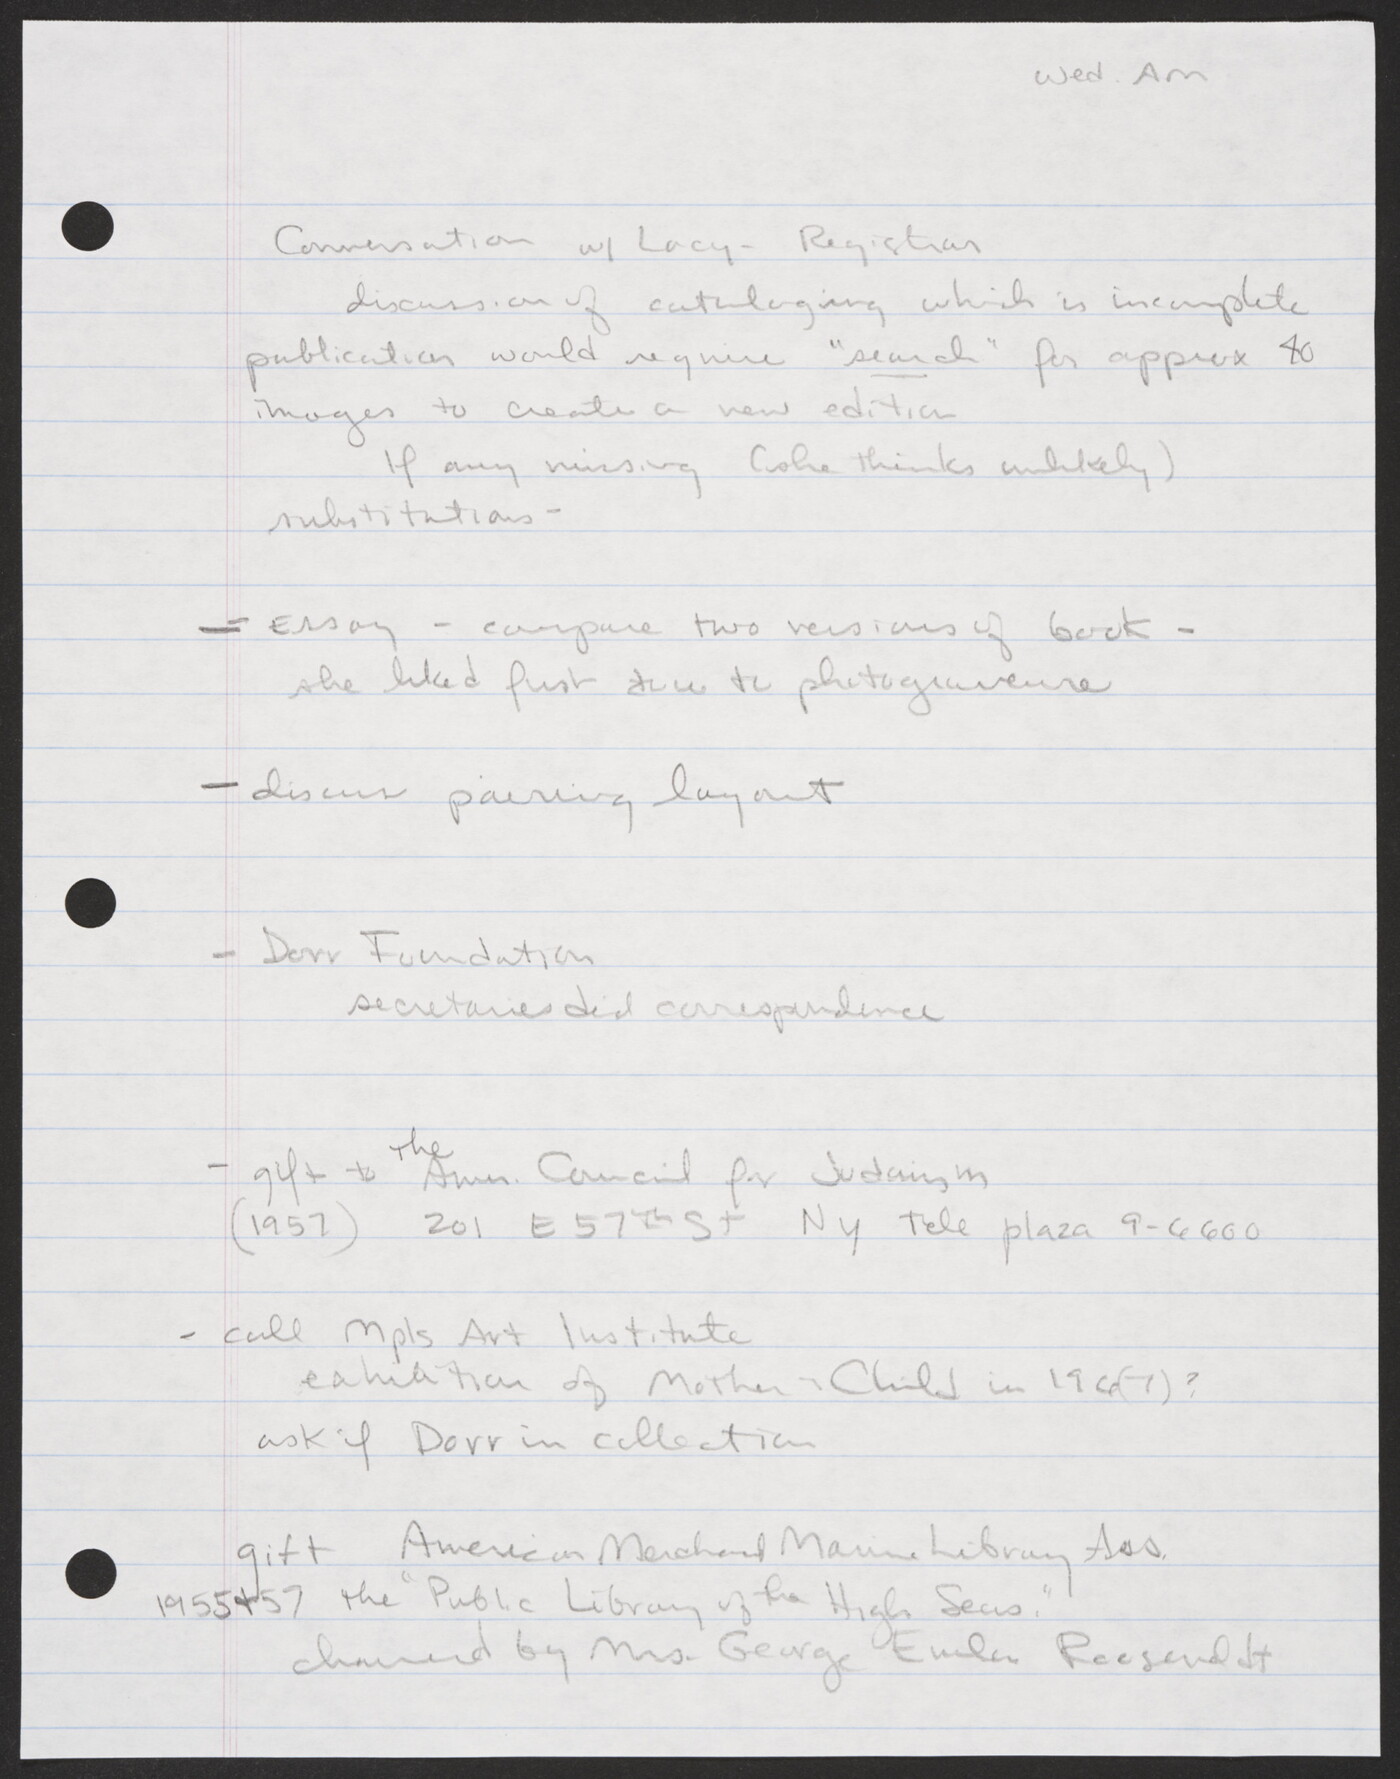 Wed. AM
Conversation w/ Lacy - Registrar
discussion of cataloging which is incomplete
publication would require "search" for approx 80
images to create a new edition
If any missing (she thinks unlikely)
substitutions -
- Essay - compare two versions of book -
she liked first due to photogravure
- discuss pairing layout
- Dorr Foundation
secretaries did correspondence
- gift to the Amer. Council for Judaism
(1957) 201 E 57th St NY Tele plaza 9-6600
- call Mpls Art Institute
exhibition of Mother + Child in 196(7)?
ask if Dorr in collection
gift American Merchand Marine Library Ass.
1955+57 the "Public Library of the High Seas."
chaired by Mrs. George Emlen Roosevelt